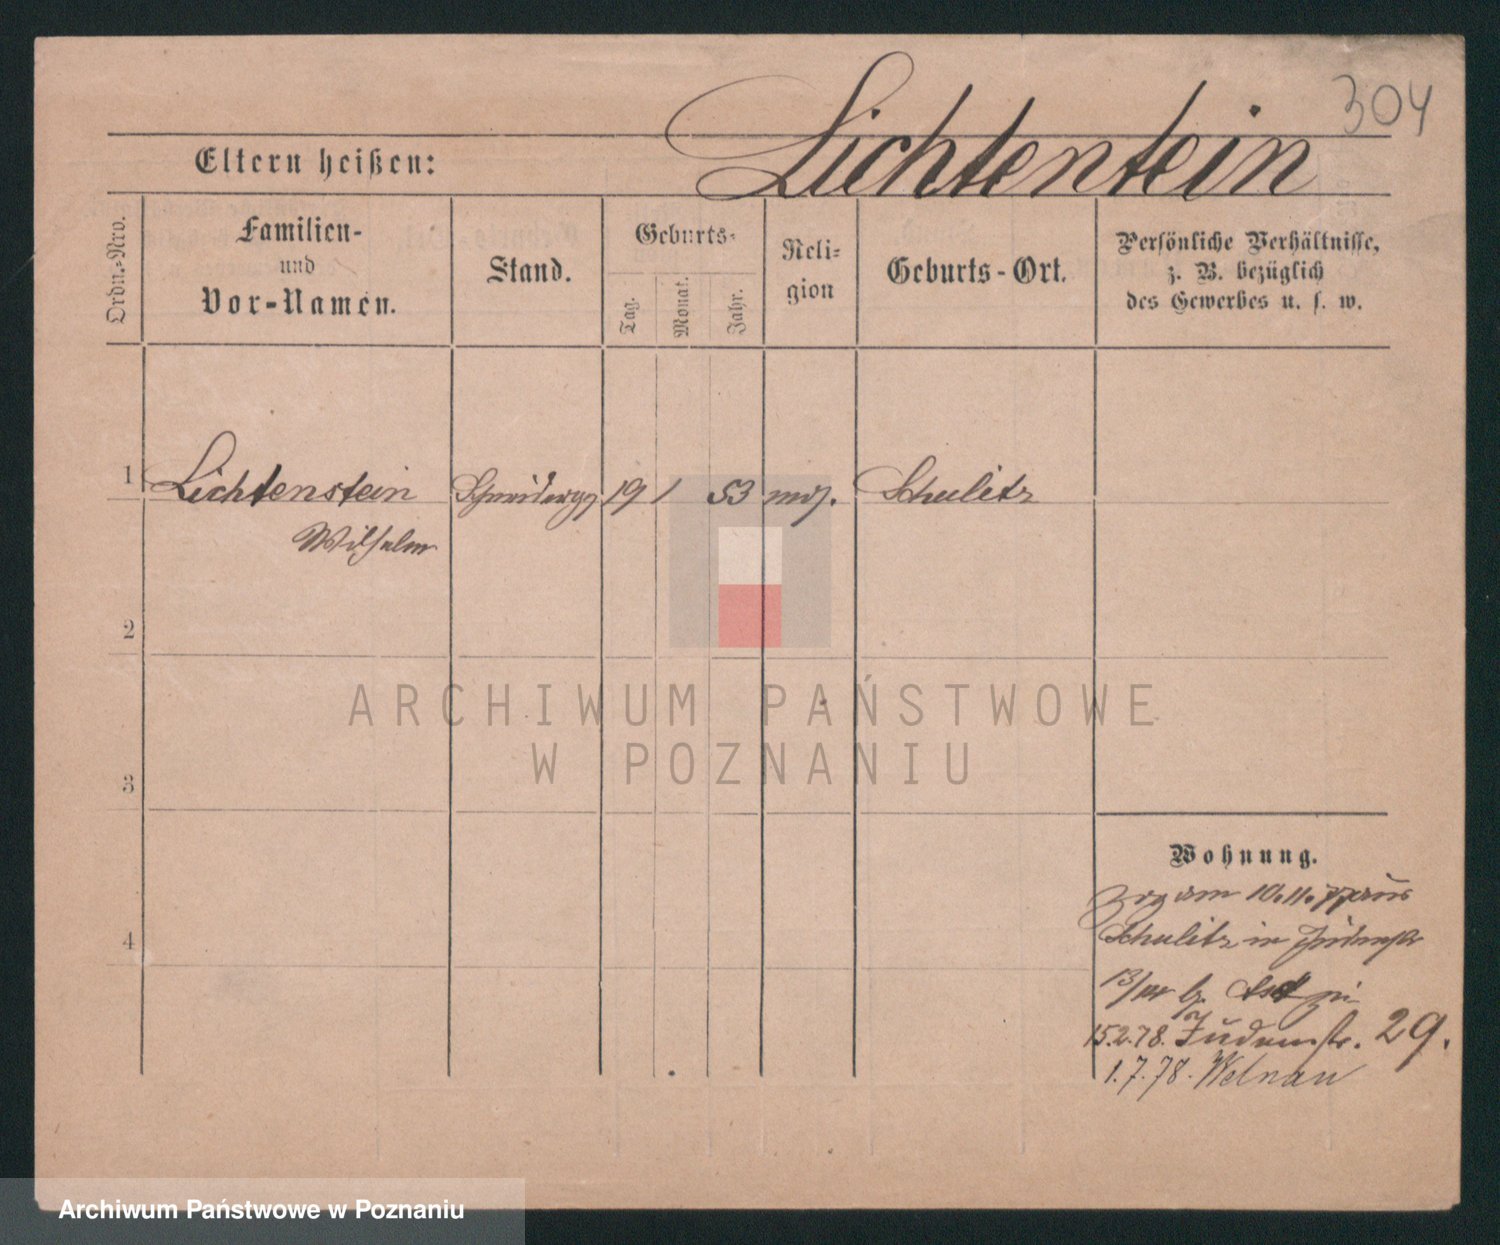 304
Lichtenstein
Eltern heißen:
Ordn.-Nro.
Familien-
und
Vor-Namen.
Stand.
Geburts-
Tag.
Monat.
Jahr.
Reli-
gion
Geburts-Ort.
Persönliche Verhältnisse,
z. B. bezüglich
des Gewerbes u. s. w.
1 Lichtenstein 19 1 53 mos. Schulitz
Wilhelm
2
3
4
ARCHIWUM PAŃSTWOWE
W POZNANIU
Wohnung.
Zog am 10.11.77 aus
Schulitz in
15.2.78. Judenstr. 29.
1.7.78. Welnau
Archiwum Państwowe w Poznaniu